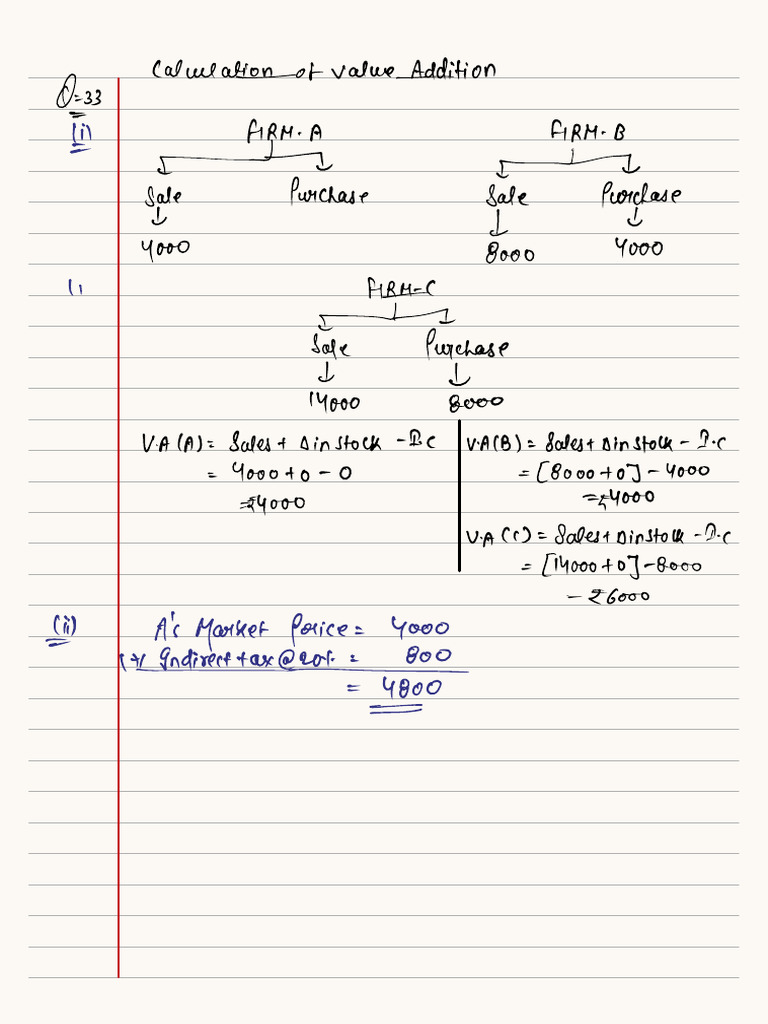 Calculation of Value Addition
Q=33
(i) FIRM-A FIRM-B
Sale Purchase Sale Purchase
4000 8000 4000
(i
FIRM-C
Sale Purchase
14000 8000
V.A(A) = Sales + Δ in stock - I.C
= 4000 + 0 - 0
= ₹4000
V.A(B) = Sales + Δ in stock - I.C
= [8000 + 0] - 4000
= ₹4000
V.A(C) = Sales + Δ in stock - I.C
= [14000 + 0] - 8000
- ₹6000
(ii) A's Market Porice = 4000
(+) Indirect tax @ 20%. = 800
= 4800